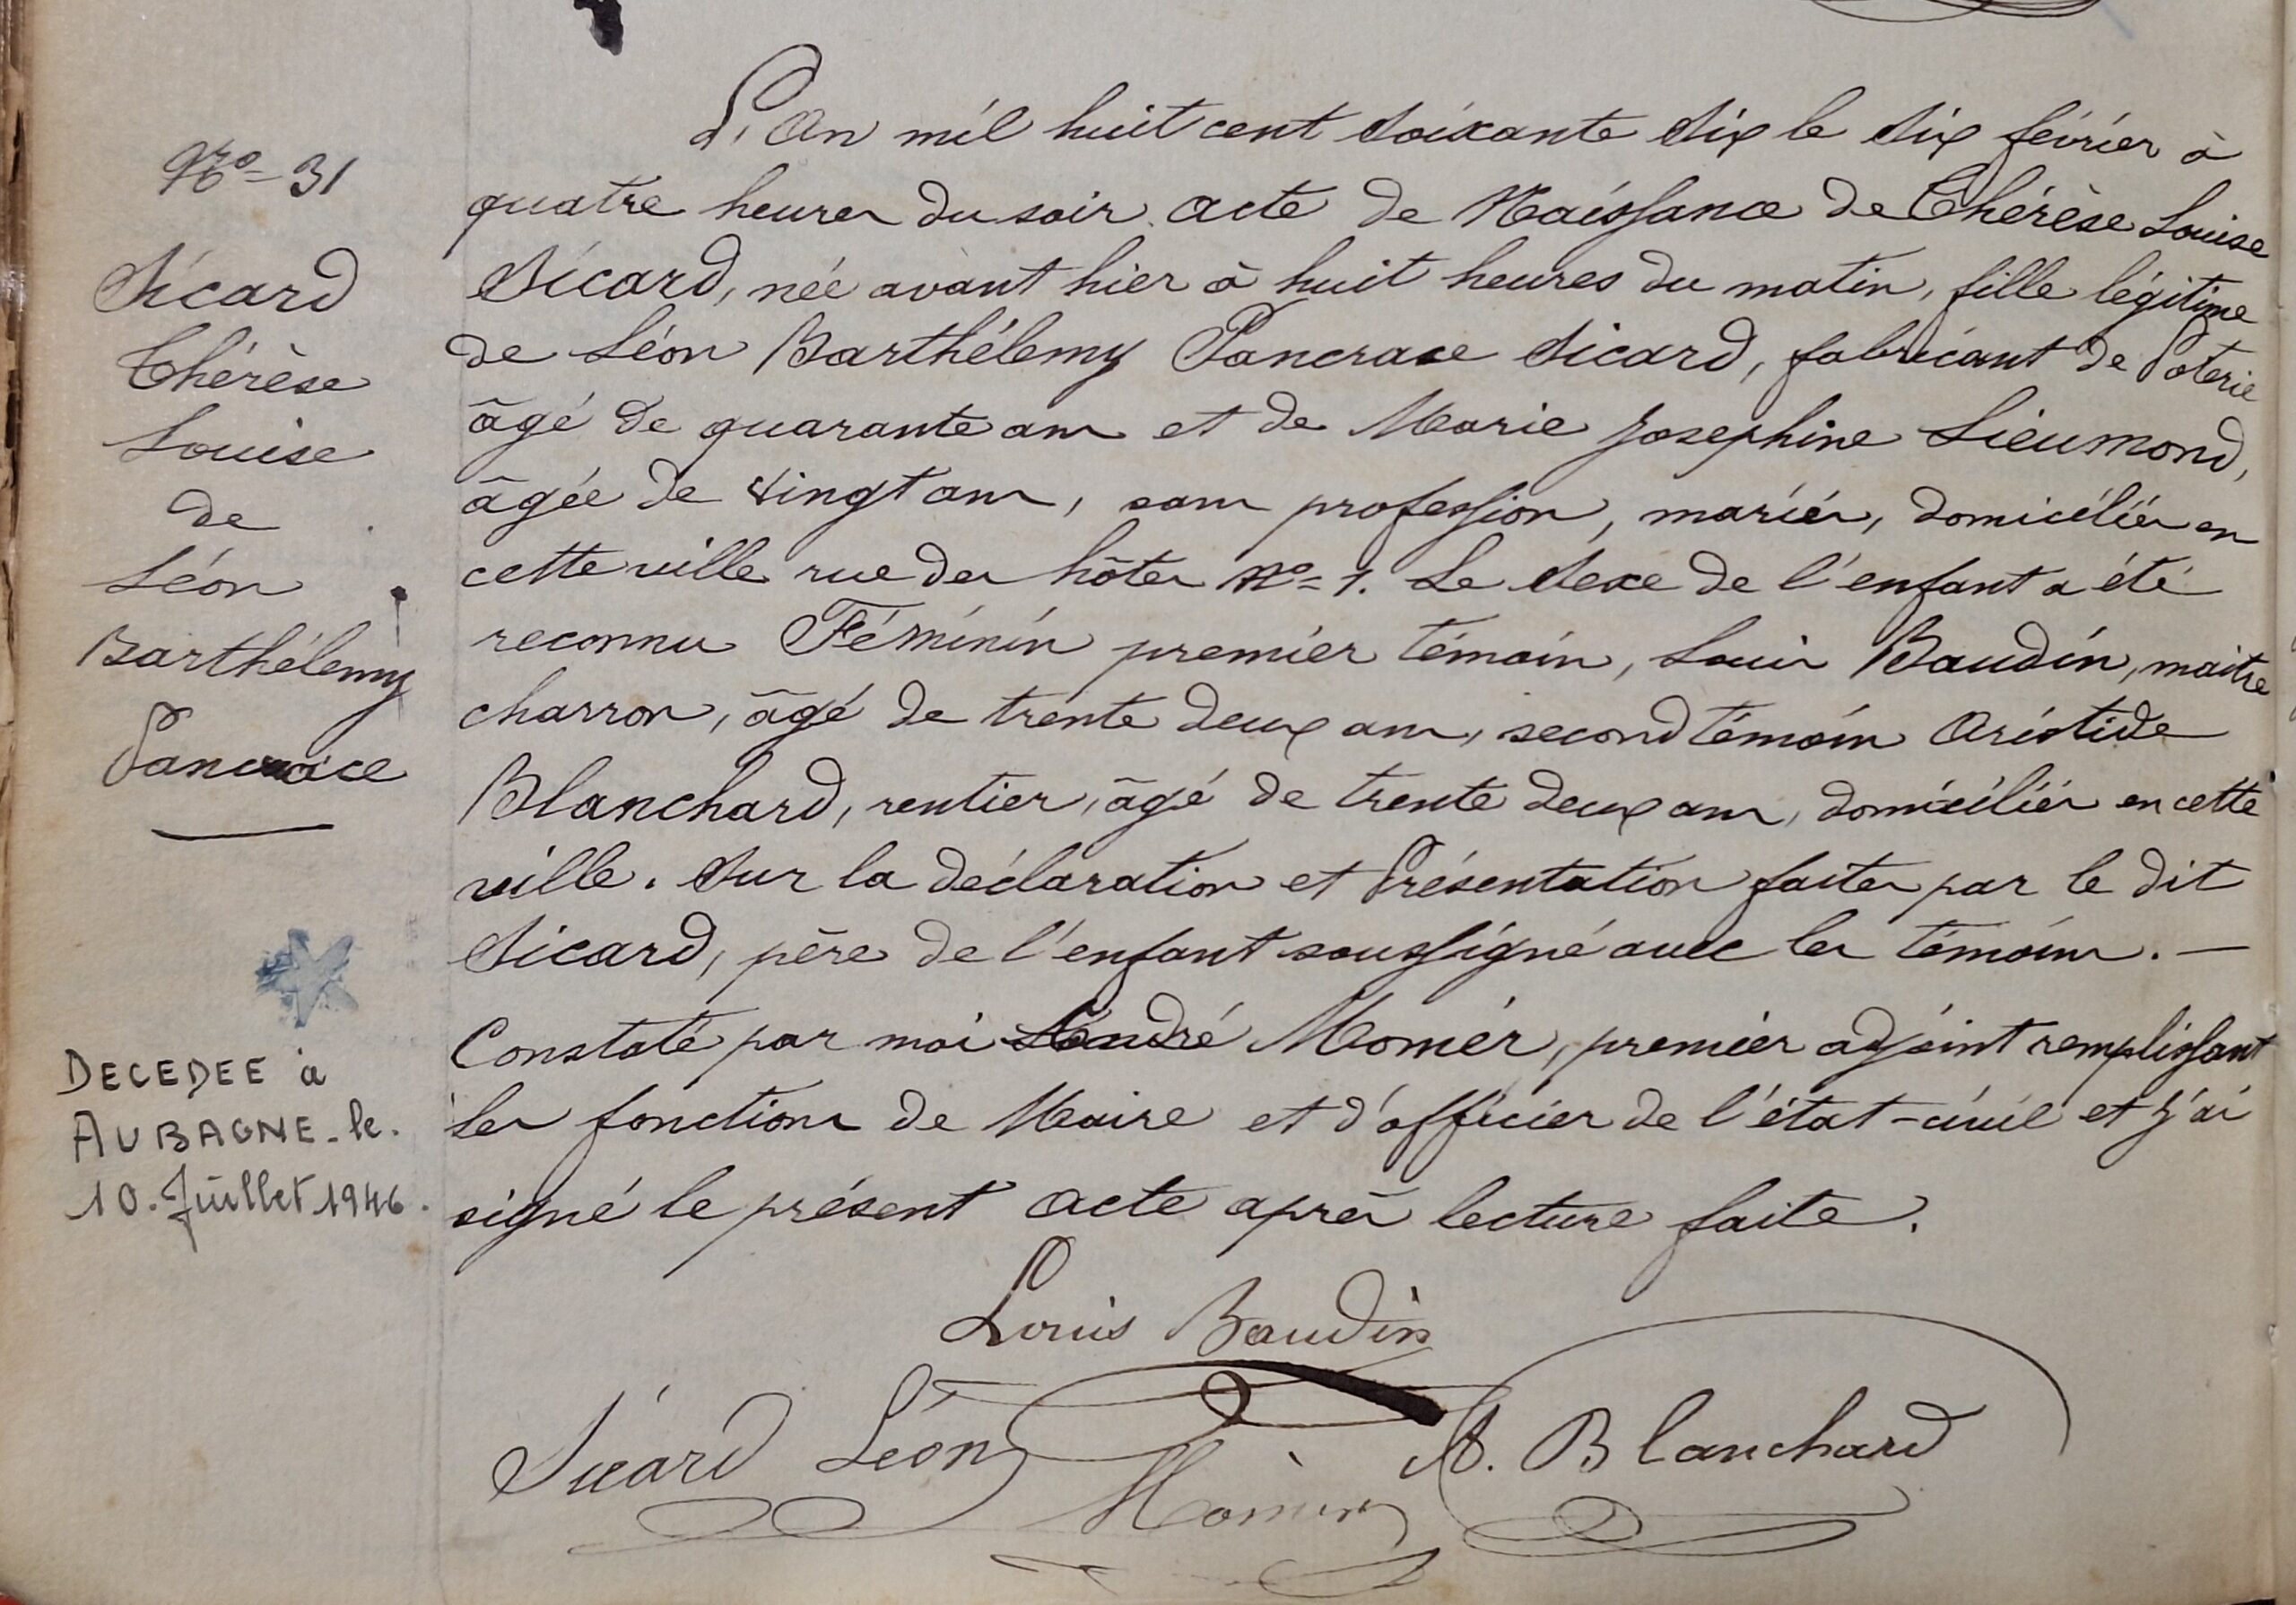 Nro= 31
Sicard
Thérèse
Louise
de
Léon
Barthélemy
Pancrace
DECEDEE à
AUBAGNE - le.
10. Juillet 1946.
L'An mil huit cent soixante six le six février à
quatre heures du soir acte de Naissance de Thérèse Louise
Sicard, née avant hier à huit heures du matin, fille légitime
de Léon Barthélemy Pancrace Sicard, fabricant de Poterie
âgé de quarante ans et de Marie Josephine Lieumond,
âgée de vingt ans, sans profession, mariés, domiciliés en
cette ville rue des hôtes No= 1. Le Sexe de l'enfant a été
reconnu Féminin premier témoin, Louis Baudin, maitre
charron, âgé de trente deux ans, second témoin Aristide
Blanchard, rentier, âgé de trente deux ans, domiciliés en cette
ville. Sur la déclaration et Présentation faites par le dit
Sicard, père de l'enfant soussigné avec les témoins. —
Constaté par moi André Monier, premier adjoint remplissant
les fonctions de Maire et d'officier de l'état-civil et j'ai
signé le présent acte après lecture faite.
Louis Baudin
Sicard Léon
A. Blanchard
Monier